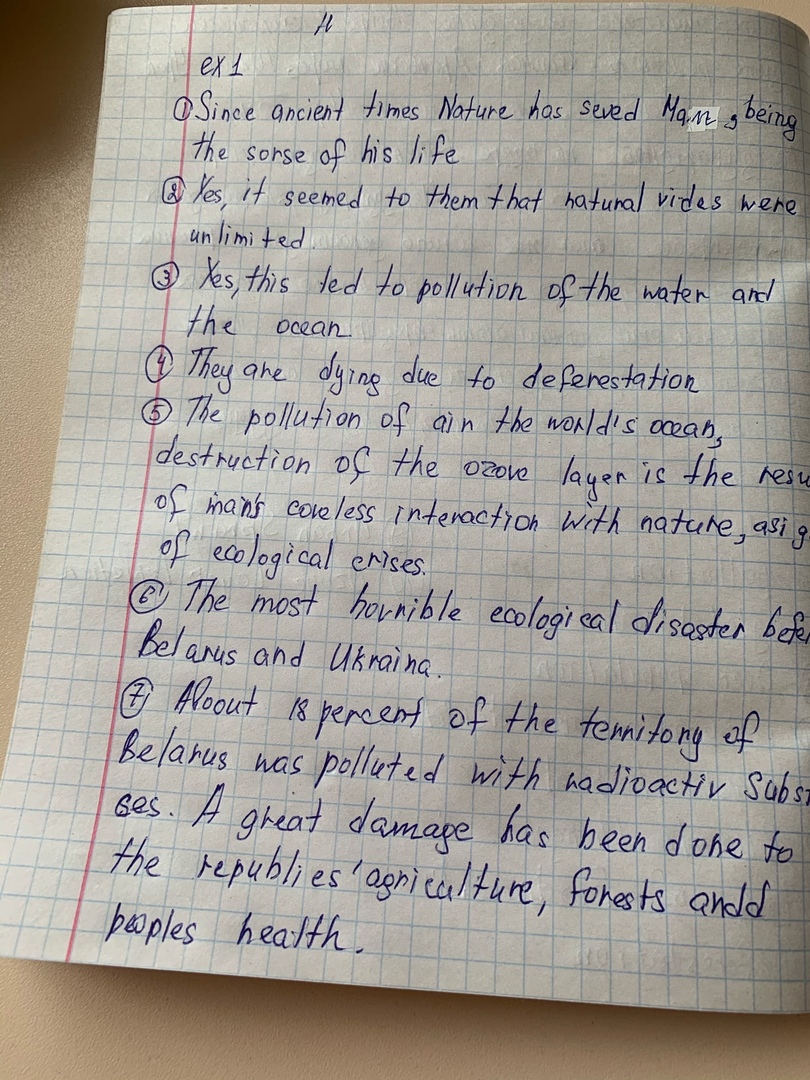 ex 1
① Since ancient times Nature has seved Man, being
the sorse of his life
② Yes, it seemed to them that natural vides were
unlimited
③ Yes, this led to pollution of the water and
the ocean
④ They are dying due to deferestation
⑤ The pollution of air the world's ocean,
destruction of the ozove layer is the resu
of man's coreless interaction with nature, asig
of ecological crises.
⑥ The most horrible ecological disaster befe
Belarus and Ukraina.
⑦ Aboout 18 percent of the territory of
Belarus was polluted with radioactiv Subst
ses. A great damage has been done to
the republies' agriculture, forests andd
peoples health.